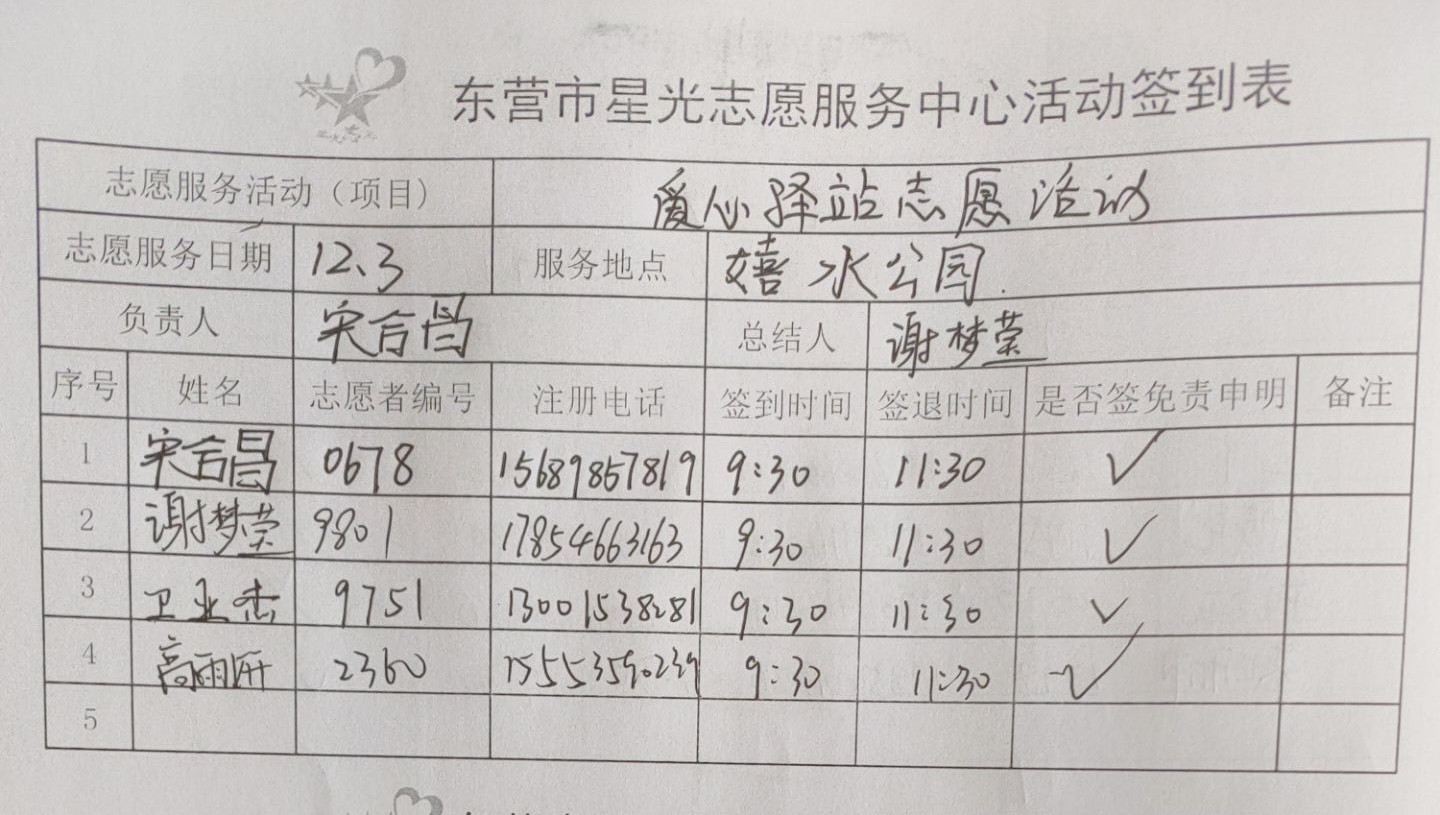 东营市星光志愿服务中心活动签到表
志愿服务活动（项目） 爱心驿站志愿活动
志愿服务日期 12、3 服务地点 嬉水公园
负责人 宋合昌 总结人 谢梦莹
序号 姓名 志愿者编号 注册电话 签到时间 签退时间 是否签免责申明 备注
1 宋合昌 0678 15689857819 9:30 11:30 ✓
2 谢梦莹 9801 17854663163 9:30 11:30 ✓
3 卫亚杰 9751 13001538281 9:30 11:30 ✓
4 高雨妍 2360 15553590239 9:30 11:30 ✓
5